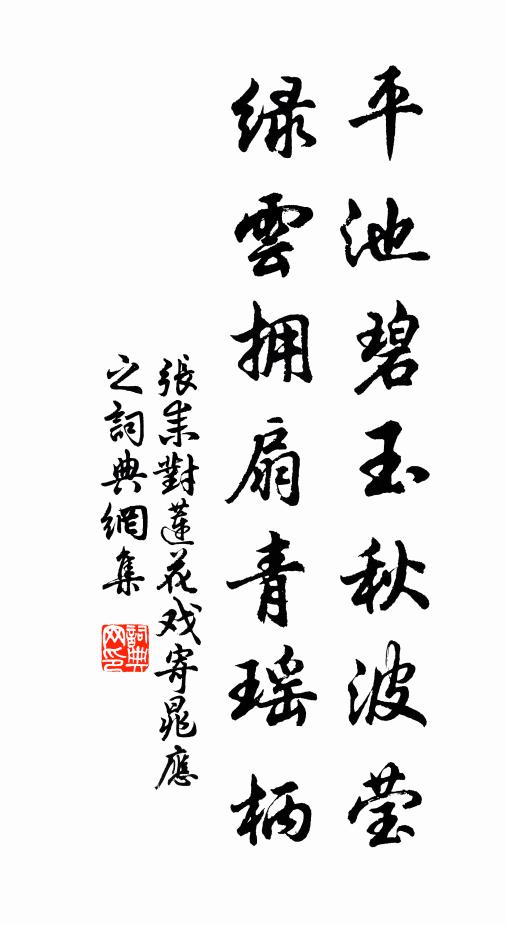 平池碧玉秋波莹
绿雲拥扇青瑶柄
張耒對蓮花戏寄晁應
之詞典網集
詞典网印